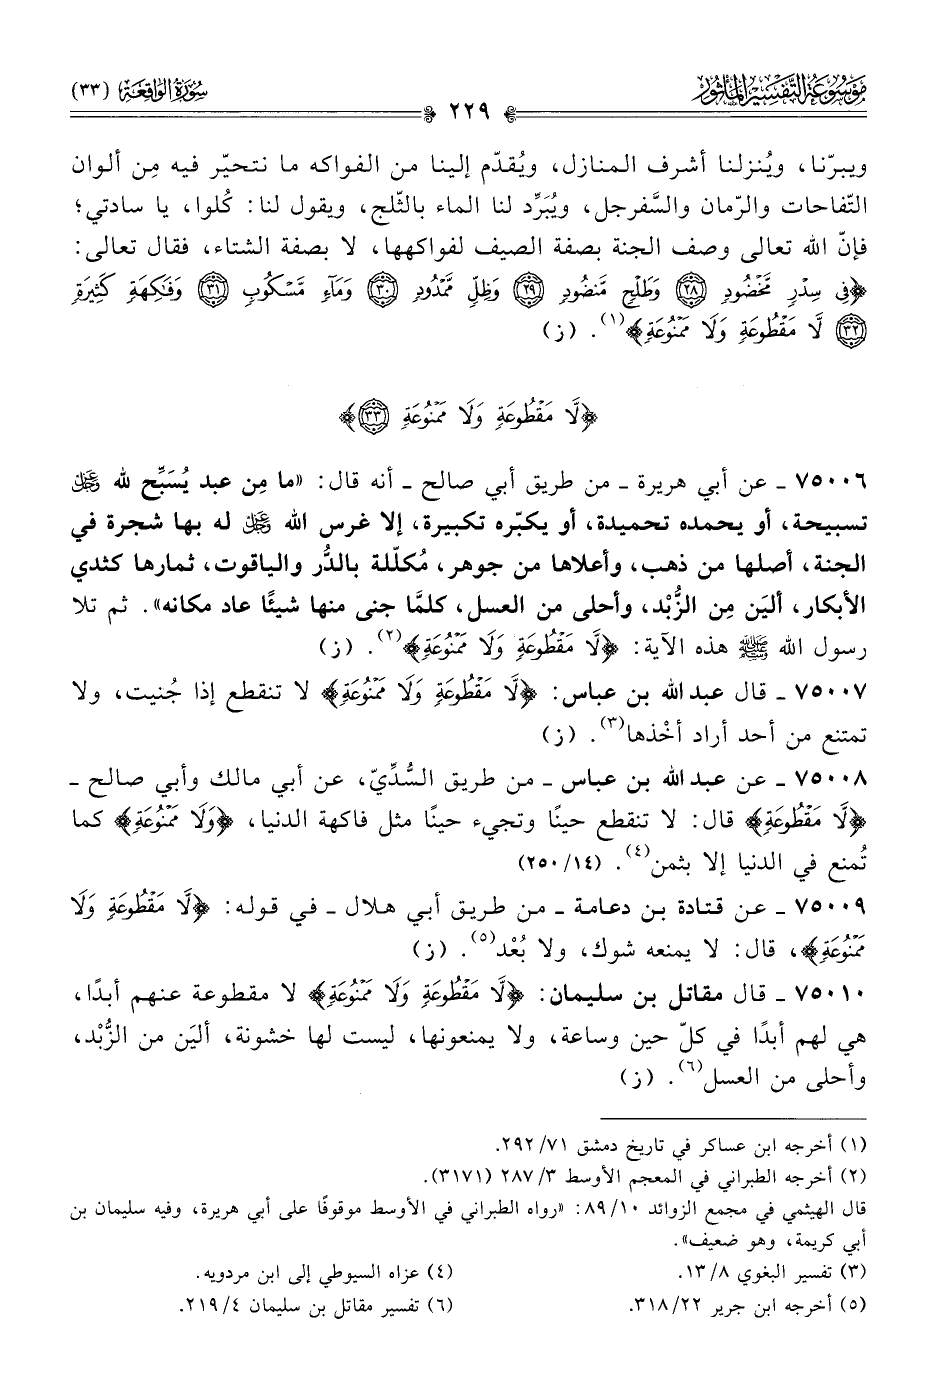 موسوعة التفسير المأثور
سورة الواقعة (٣٣)
٢٢٩
ويبرّنا، ويُنزلنا أشرف المنازل، ويُقدّم إلينا من الفواكه ما نتحيّر فيه مِن ألوان
التّفاحات والرّمان والسَّفرجل، ويُبَرِّد لنا الماء بالثّلج، ويقول لنا: كُلوا، يا سادتي؛
فإنّ الله تعالى وصف الجنة بصفة الصيف لفواكهها، لا بصفة الشتاء، فقال تعالى:
﴿فِى سِدْرٍ مَّخْضُودٍ ٢٨ وَطَلْحٍ مَّنضُودٍ ٢٩ وَظِلٍّ مَّمْدُودٍ ٣٠ وَمَآءٍ مَّسْكُوبٍ ٣١ وَفَٰكِهَةٍ كَثِيرَةٍ
٣٢ لَّا مَقْطُوعَةٍ وَلَا مَمْنُوعَةٍ﴾(١). (ز)
﴿لَّا مَقْطُوعَةٍ وَلَا مَمْنُوعَةٍ ٣٣﴾
٧٥٠٠٦ ـ عن أبي هريرة ـ من طريق أبي صالح ـ أنه قال: «ما مِن عبد يُسَبِّح لله ﷿
تسبيحة، أو يحمده تحميدة، أو يكبّره تكبيرة، إلا غرس الله ﷿ له بها شجرة في
الجنة، أصلها من ذهب، وأعلاها من جوهر، مُكلّلة بالدُّر والياقوت، ثمارها كثدي
الأبكار، أليَن مِن الزُّبْد، وأحلى من العسل، كلمَّا جنى منها شيئًا عاد مكانه». ثم تلا
رسول الله ﷺ هذه الآية: ﴿لَّا مَقْطُوعَةٍ وَلَا مَمْنُوعَةٍ﴾(٢). (ز)
٧٥٠٠٧ ـ قال عبد الله بن عباس: ﴿لَّا مَقْطُوعَةٍ وَلَا مَمْنُوعَةٍ﴾ لا تنقطع إذا جُنيت، ولا
تمتنع من أحد أراد أخْذها(٣). (ز)
٧٥٠٠٨ ـ عن عبد الله بن عباس ـ من طريق السُّدِّيّ، عن أبي مالك وأبي صالح ـ
﴿لَّا مَقْطُوعَةٍ﴾ قال: لا تنقطع حينًا وتجيء حينًا مثل فاكهة الدنيا، ﴿وَلَا مَمْنُوعَةٍ﴾ كما
تُمنع في الدنيا إلا بثمن(٤). (١٤/ ٢٥٠)
٧٥٠٠٩ ـ عن قتادة بن دعامة ـ من طريق أبي هلال ـ في قوله: ﴿لَّا مَقْطُوعَةٍ وَلَا
مَمْنُوعَةٍ﴾، قال: لا يمنعه شوك، ولا بُعْد(٥). (ز)
٧٥٠١٠ ـ قال مقاتل بن سليمان: ﴿لَّا مَقْطُوعَةٍ وَلَا مَمْنُوعَةٍ﴾ لا مقطوعة عنهم أبدًا،
هي لهم أبدًا في كلّ حين وساعة، ولا يمنعونها، ليست لها خشونة، أليَن من الزُّبْد،
وأحلى من العسل(٦). (ز)
(١) أخرجه ابن عساكر في تاريخ دمشق ٧١/ ٢٩٢.
(٢) أخرجه الطبراني في المعجم الأوسط ٣/ ٢٨٧ (٣١٧١).
قال الهيثمي في مجمع الزوائد ١٠/ ٨٩: «رواه الطبراني في الأوسط موقوفًا على أبي هريرة، وفيه سليمان بن
أبي كريمة، وهو ضعيف».
(٣) تفسير البغوي ٨/ ١٣.
(٤) عزاه السيوطي إلى ابن مردويه.
(٥) أخرجه ابن جرير ٢٢/ ٣١٨.
(٦) تفسير مقاتل بن سليمان ٤/ ٢١٩.